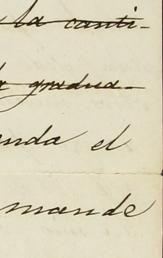 la canti-
gradua-
enda el
mande